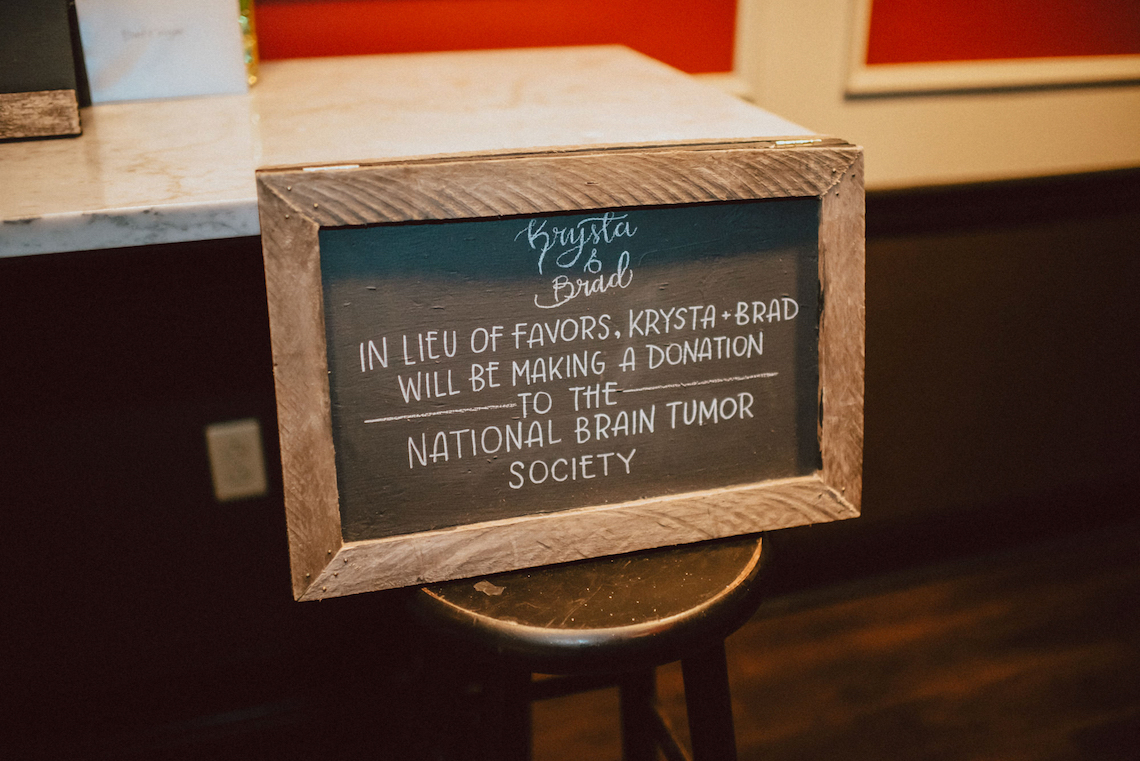 Krysta
&
Brad
IN LIEU OF FAVORS, KRYSTA + BRAD
WILL BE MAKING A DONATION
TO THE
NATIONAL BRAIN TUMOR
SOCIETY